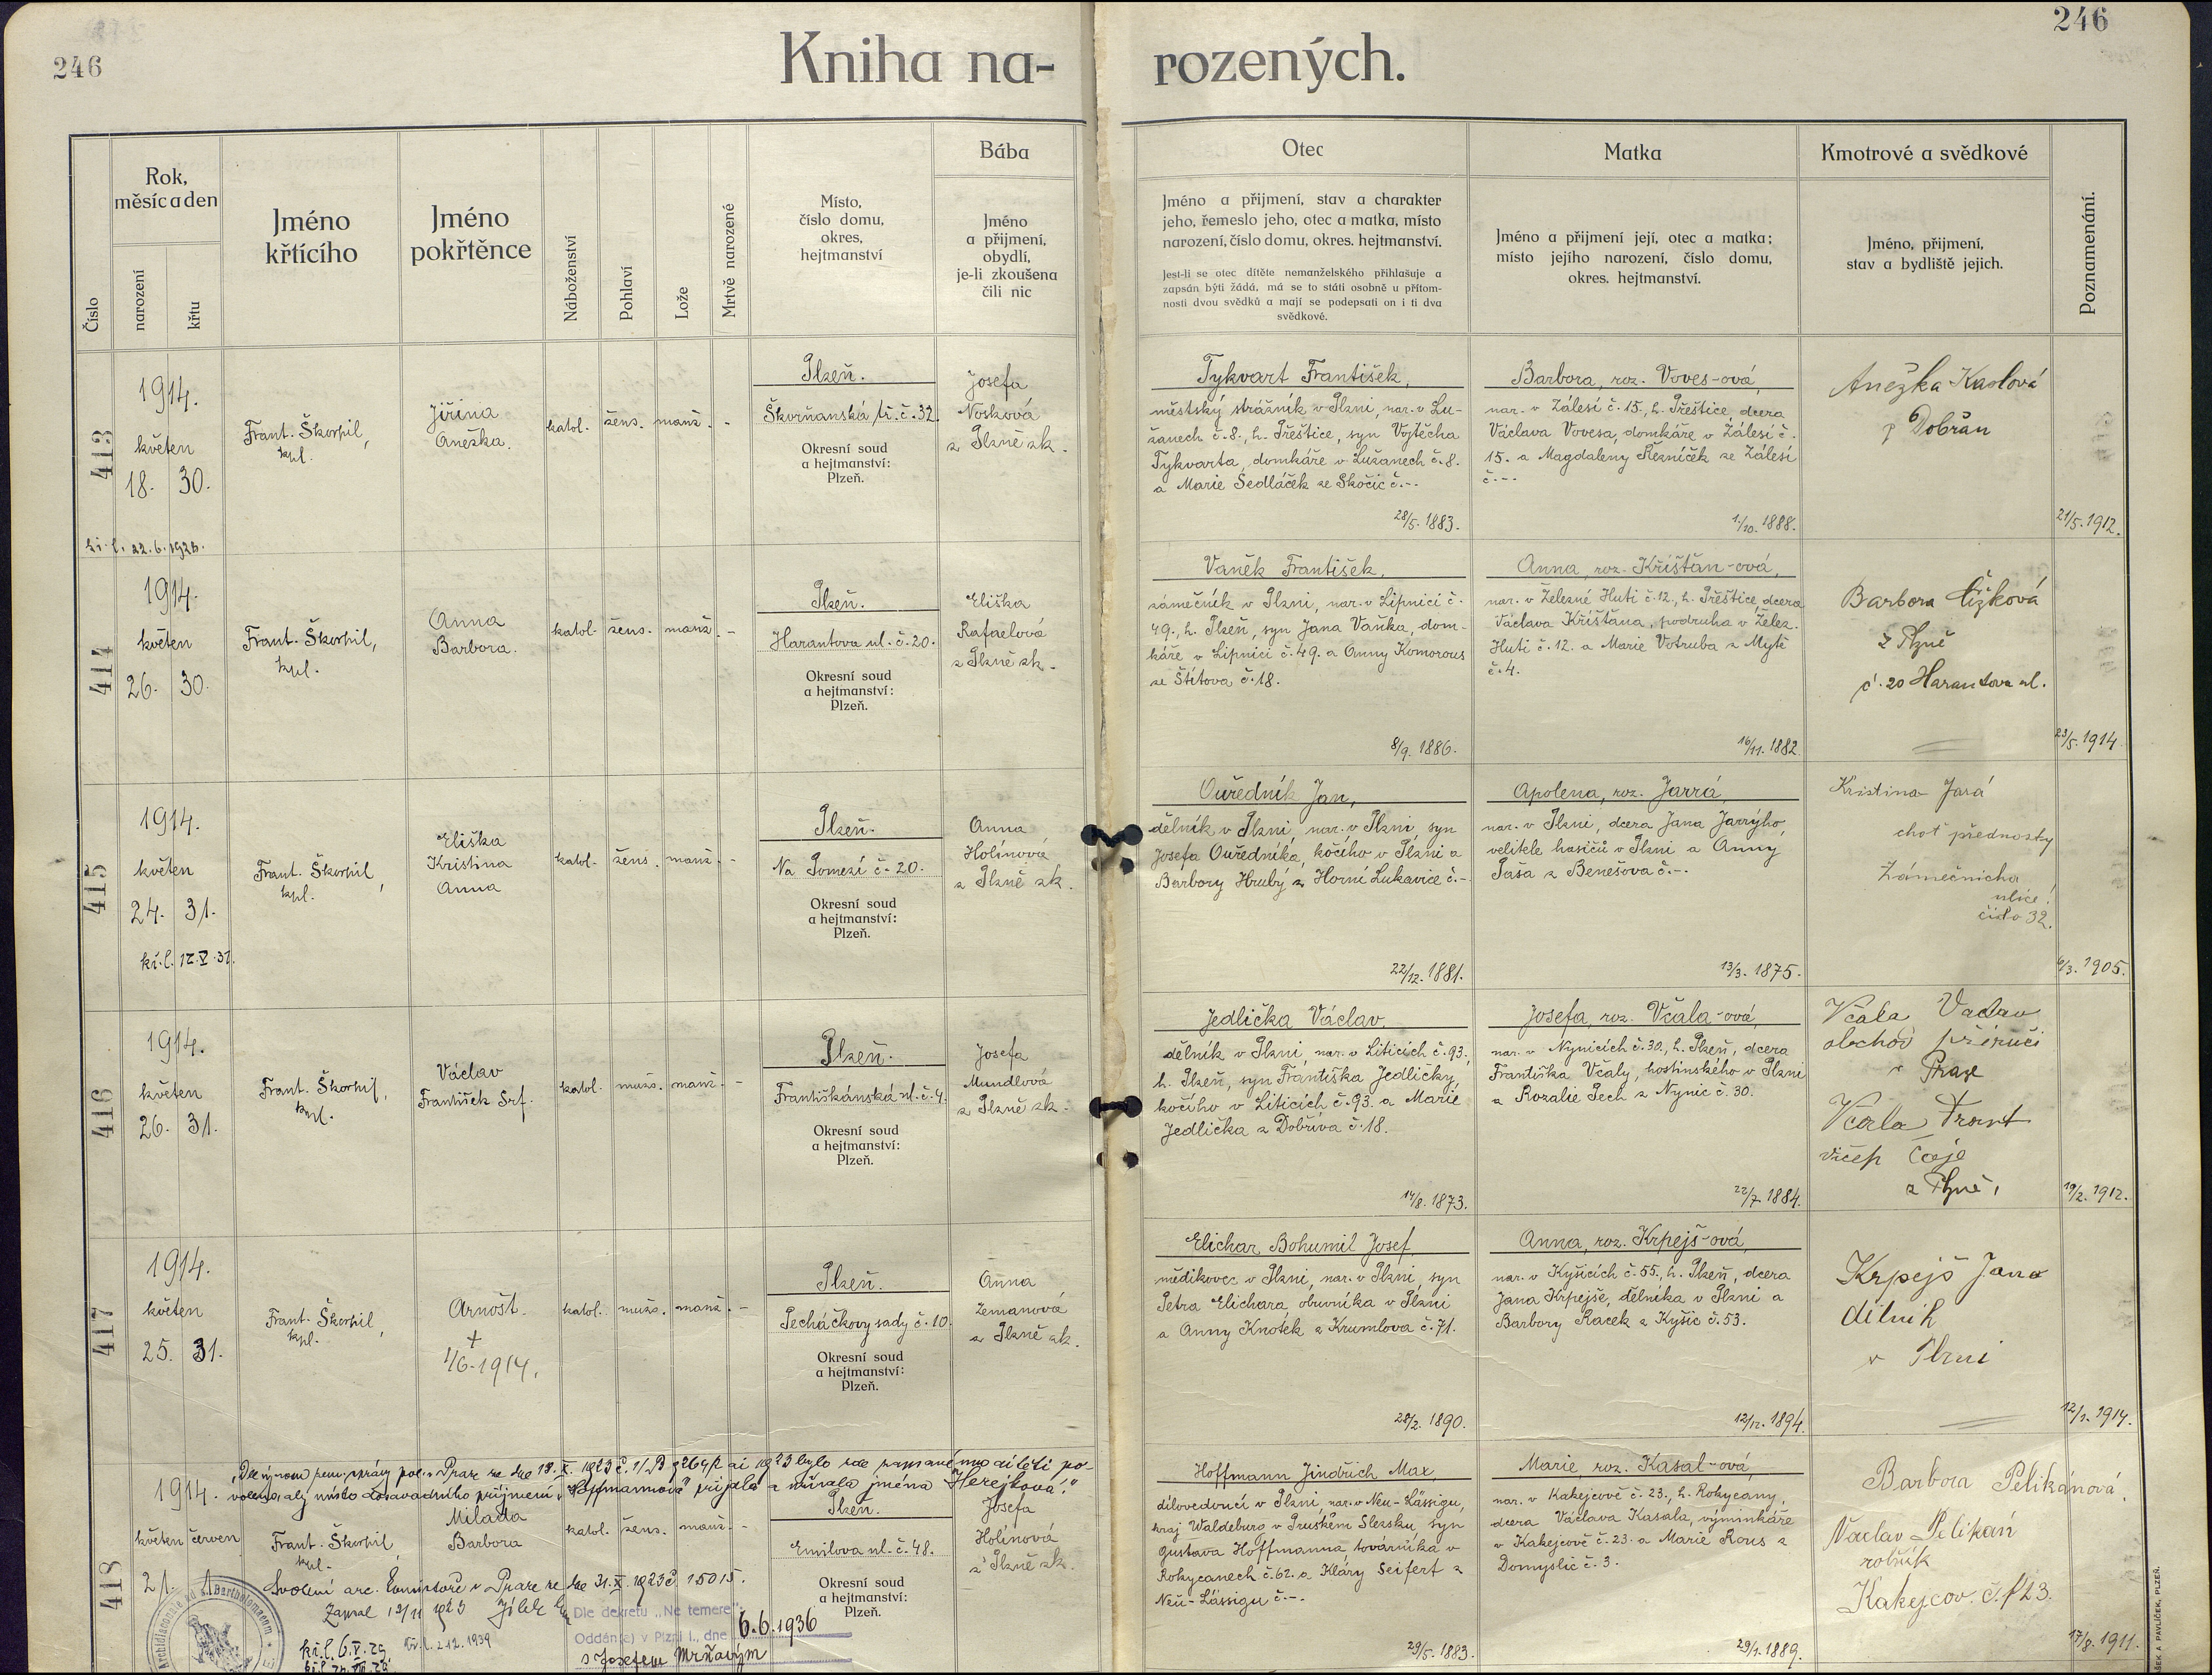 246
246
Kniha na-
rozených.
Číslo
Rok,
měsíc a den
narození
křtu
Jméno
křtícího
Jméno
pokřtěnce
Náboženství
Pohlaví
Lože
Mrtvě narozené
Místo,
číslo domu,
okres,
hejtmanství
Bába
Jméno
a příjmení,
obydlí,
je-li zkoušena
čili nic
Otec
Jméno a příjmení, stav a charakter
jeho, řemeslo jeho, otec a matka, místo
narození, číslo domu, okres. hejtmanství.
Jest-li se otec dítěte nemanželského přihlašuje a
zapsán býti žádá, má se to státi osobně u přítom-
nosti dvou svědků a mají se podepsati on i ti dva
svědkové.
Matka
Jméno a příjmení její, otec a matka;
místo jejího narození, číslo domu,
okres. hejtmanství.
Kmotrové a svědkové
Jméno, příjmení,
stav a bydliště jejich.
Poznamenání.
413
1914.
květen
18. 30.
22.6.1928.
Frant. Škorpil,
kpl.
Jiřina
Anežka.
katol. žens. manž. -
Plzeň.
Škorňanská tř. č. 32.
Okresní soud
a hejtmanství:
Plzeň.
Josefa
Nosková
z Plzně zk.
Tykvart František,
městský strážník v Plzni, nar. v Lu-
žanech č. 8., h. Přeštice, syn Vojtěcha
Tykvarta, domkáře v Lužanech č. 8.
a Marie Sedláček ze Skočic č. --
28/5. 1883.
Barbora, roz. Voves-ová,
nar. v Zálesí č. 15., h. Přeštice, dcera
Václava Vovesa, domkáře v Zálesí č.
15. a Magdaleny Řezníček ze Zálesí
č. --
1/10. 1888.
Anežka Kaslová
z Dobřan
21/5. 1912.
414
1914.
květen
26. 30.
Frant. Škorpil,
kpl.
Anna
Barbora.
katol. žens. manž. -
Plzeň.
Harantova ul. č. 20.
Okresní soud
a hejtmanství:
Plzeň.
Eliška
Rafaelová
z Plzně zk.
Vaněk František,
zámečník v Plzni, nar. v Lipnici č.
49., h. Plzeň, syn Jana Vaňka, dom-
káře v Lipnici č. 49. a Anny Komorous
ze Štítova č. 18.
8/9. 1886.
Anna, roz. Křišťan-ová,
nar. v Železné Huti č. 12., h. Přeštice, dcera
Václava Křišťana, podruha v Želez.
Huti č. 12. a Marie Votruba z Mýtě
č. 4.
16/11. 1882.
Barbora Čížková
z Plzně
č. 20 Harantova ul.
23/5. 1914.
415
1914.
květen
24. 31.
kř. l. 12. V. 31.
Frant. Škorpil,
kpl.
Eliška
Kristina
Anna
katol. žens. manž. -
Plzeň.
Na Pomezí č. 20.
Okresní soud
a hejtmanství:
Plzeň.
Anna
Holínová
z Plzně zk.
Ouředník Jan,
dělník v Plzni, nar. v Plzni, syn
Josefa Ouředníka, kočího v Plzni a
Barbory Hrubý z Horní Lukavice č. -
22/12. 1881.
Apolena, roz. Jarrá,
nar. v Plzni, dcera Jana Jarrýho,
velitele hasičů v Plzni a Anny
Paša z Benešova č. --
13/3. 1875.
Kristina Jará
choť přednosty
Zámečnická
ulice
číslo 32.
6/3. 1905.
416
1914.
květen
26. 31.
Frant. Škorpil,
kpl.
Václav
František Srf.
katol. mužs. manž. -
Plzeň.
Františkánská ul. č. 4.
Okresní soud
a hejtmanství:
Plzeň.
Josefa
Mundlová
z Plzně zk.
Jedlička Václav,
dělník v Plzni, nar. v Liticích č. 93.,
h. Plzeň, syn Františka Jedličky,
kočího v Liticích č. 93. a Marie
Jedlička z Dobříva č. 18.
14/8. 1873.
Josefa, roz. Včala-ová,
nar. v Nynicích č. 30., h. Plzeň, dcera
Františka Včaly, hostinského v Plzni
a Rozalie Pech z Nynic č. 30.
22/7. 1884.
Včala Vaclav
obchod příručí
v Praze
Včala Frant
z Plzně,
19/2. 1912.
417
1914.
květen
25. 31.
Frant. Škorpil,
kpl.
Arnošt.
+
1/6. 1914.
katol. mužs. manž. -
Plzeň.
Pecháčkovy sady č. 10.
Okresní soud
a hejtmanství:
Plzeň.
Anna
Zemanová
z Plzně zk.
Elichar Bohumil Josef,
mědikovec v Plzni, nar. v Plzni, syn
Petra Elichara, obuvníka v Plzni
a Anny Knotek z Krumlova č. 71.
28/2. 1890.
Anna, roz. Krpejš-ová,
nar. v Kyšicích č. 55., h. Plzeň, dcera
Jana Krpejše, dělníka v Plzni a
Barbory Racek z Kyšic č. 53.
12/12. 1894.
Krpejš Jana
dělník
v Plzni
12/1. 1914.
418
„Dle výnosu zem. správy pol. v Praze ze dne 18. X. 1923 bylo zde zapsanému dítěti po-
voleno, aby místo dosavadního příjmení „Hoffmannová" přijala a užívala jména „Herejková."
1914.
květen červen
21. 1.
Frant. Škorpil,
kpl.
Milada
Barbora
katol. žens. manž. -
Plzeň.
Emilova ul. č. 48.
Okresní soud
a hejtmanství:
Plzeň.
Josefa
Holínová
z Plzně zk.
Svolení arc. konsistoře v Praze ze dne 31. X. 1923 č. 15015.
Zapsal 12/11 1923 Jílek
kř. l. 6. V. 29.
2.12. 1939
Dle dekretu „Ne temere"
Oddán(a) v Plzni I., dne 6. 6. 1936
s Josefem Mrňavým
Hoffmann Jindřich Max,
dílovedoucí v Plzni, nar. v Neu-Lässigu,
kraj Waldeburg v Pruském Slezsku, syn
Gustava Hoffmanna továrníka v
Rokycanech č. 62. a Kláry Seifert z
Neu-Lässigu č. --
29/5. 1883.
Marie, roz. Kasal-ová,
nar. v Kakejcově č. 23., h. Rokycany,
dcera Václava Kasala, výminkáře
v Kakejcově č. 23. a Marie Rous z
Domyslic č. 3.
29/1. 1889.
Barbora Pelikánová,
Vaclav Pelikán
rolník
Kakejcov. č. p 23.
17/8. 1911.